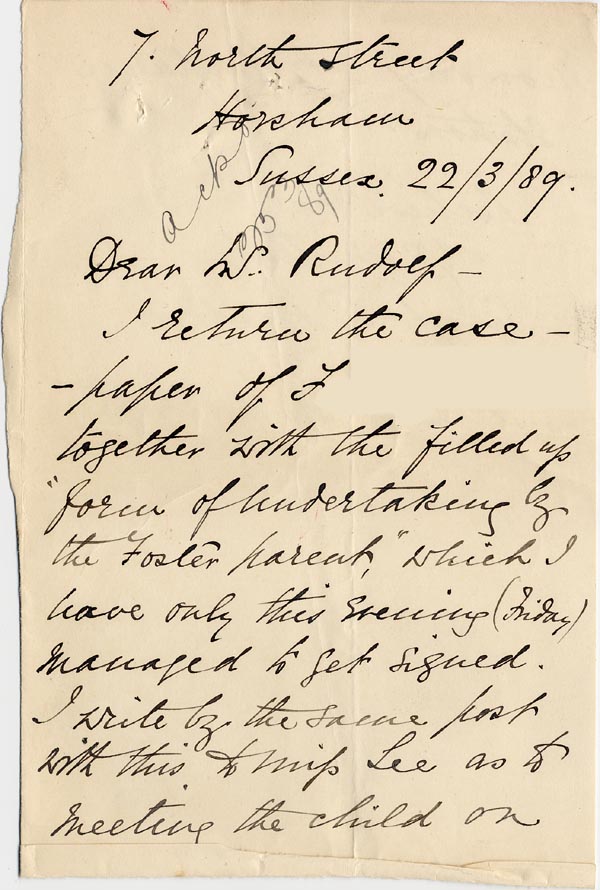 7. North Street
Horsham
Sussex. 22/3/89.
ackd
Dear Mr. Rudolf –
I return the case –
– paper of F
together with the filled up
"form of undertaking by
the Foster parent," which I
have only this evening (Friday)
managed to get signed.
I write by the same post
with this to Miss Lee as to
meeting the child on